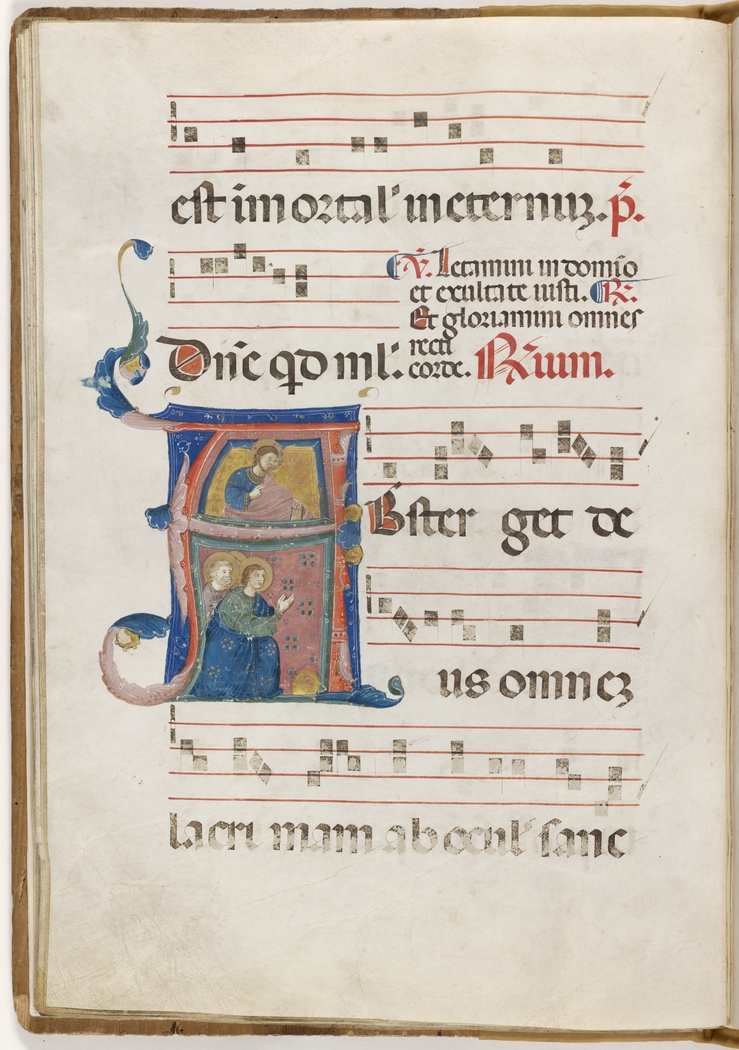 est im ortal' in eternuʒ. p̄.
℣. Letamini in domĩo
et exultate iusti. ℟.
Et gloriamini omnes
recti
Dñe qd ml'. corde. ℟ium.
ABster get de
us omneʒ
lacri mam ab ocul' sanc